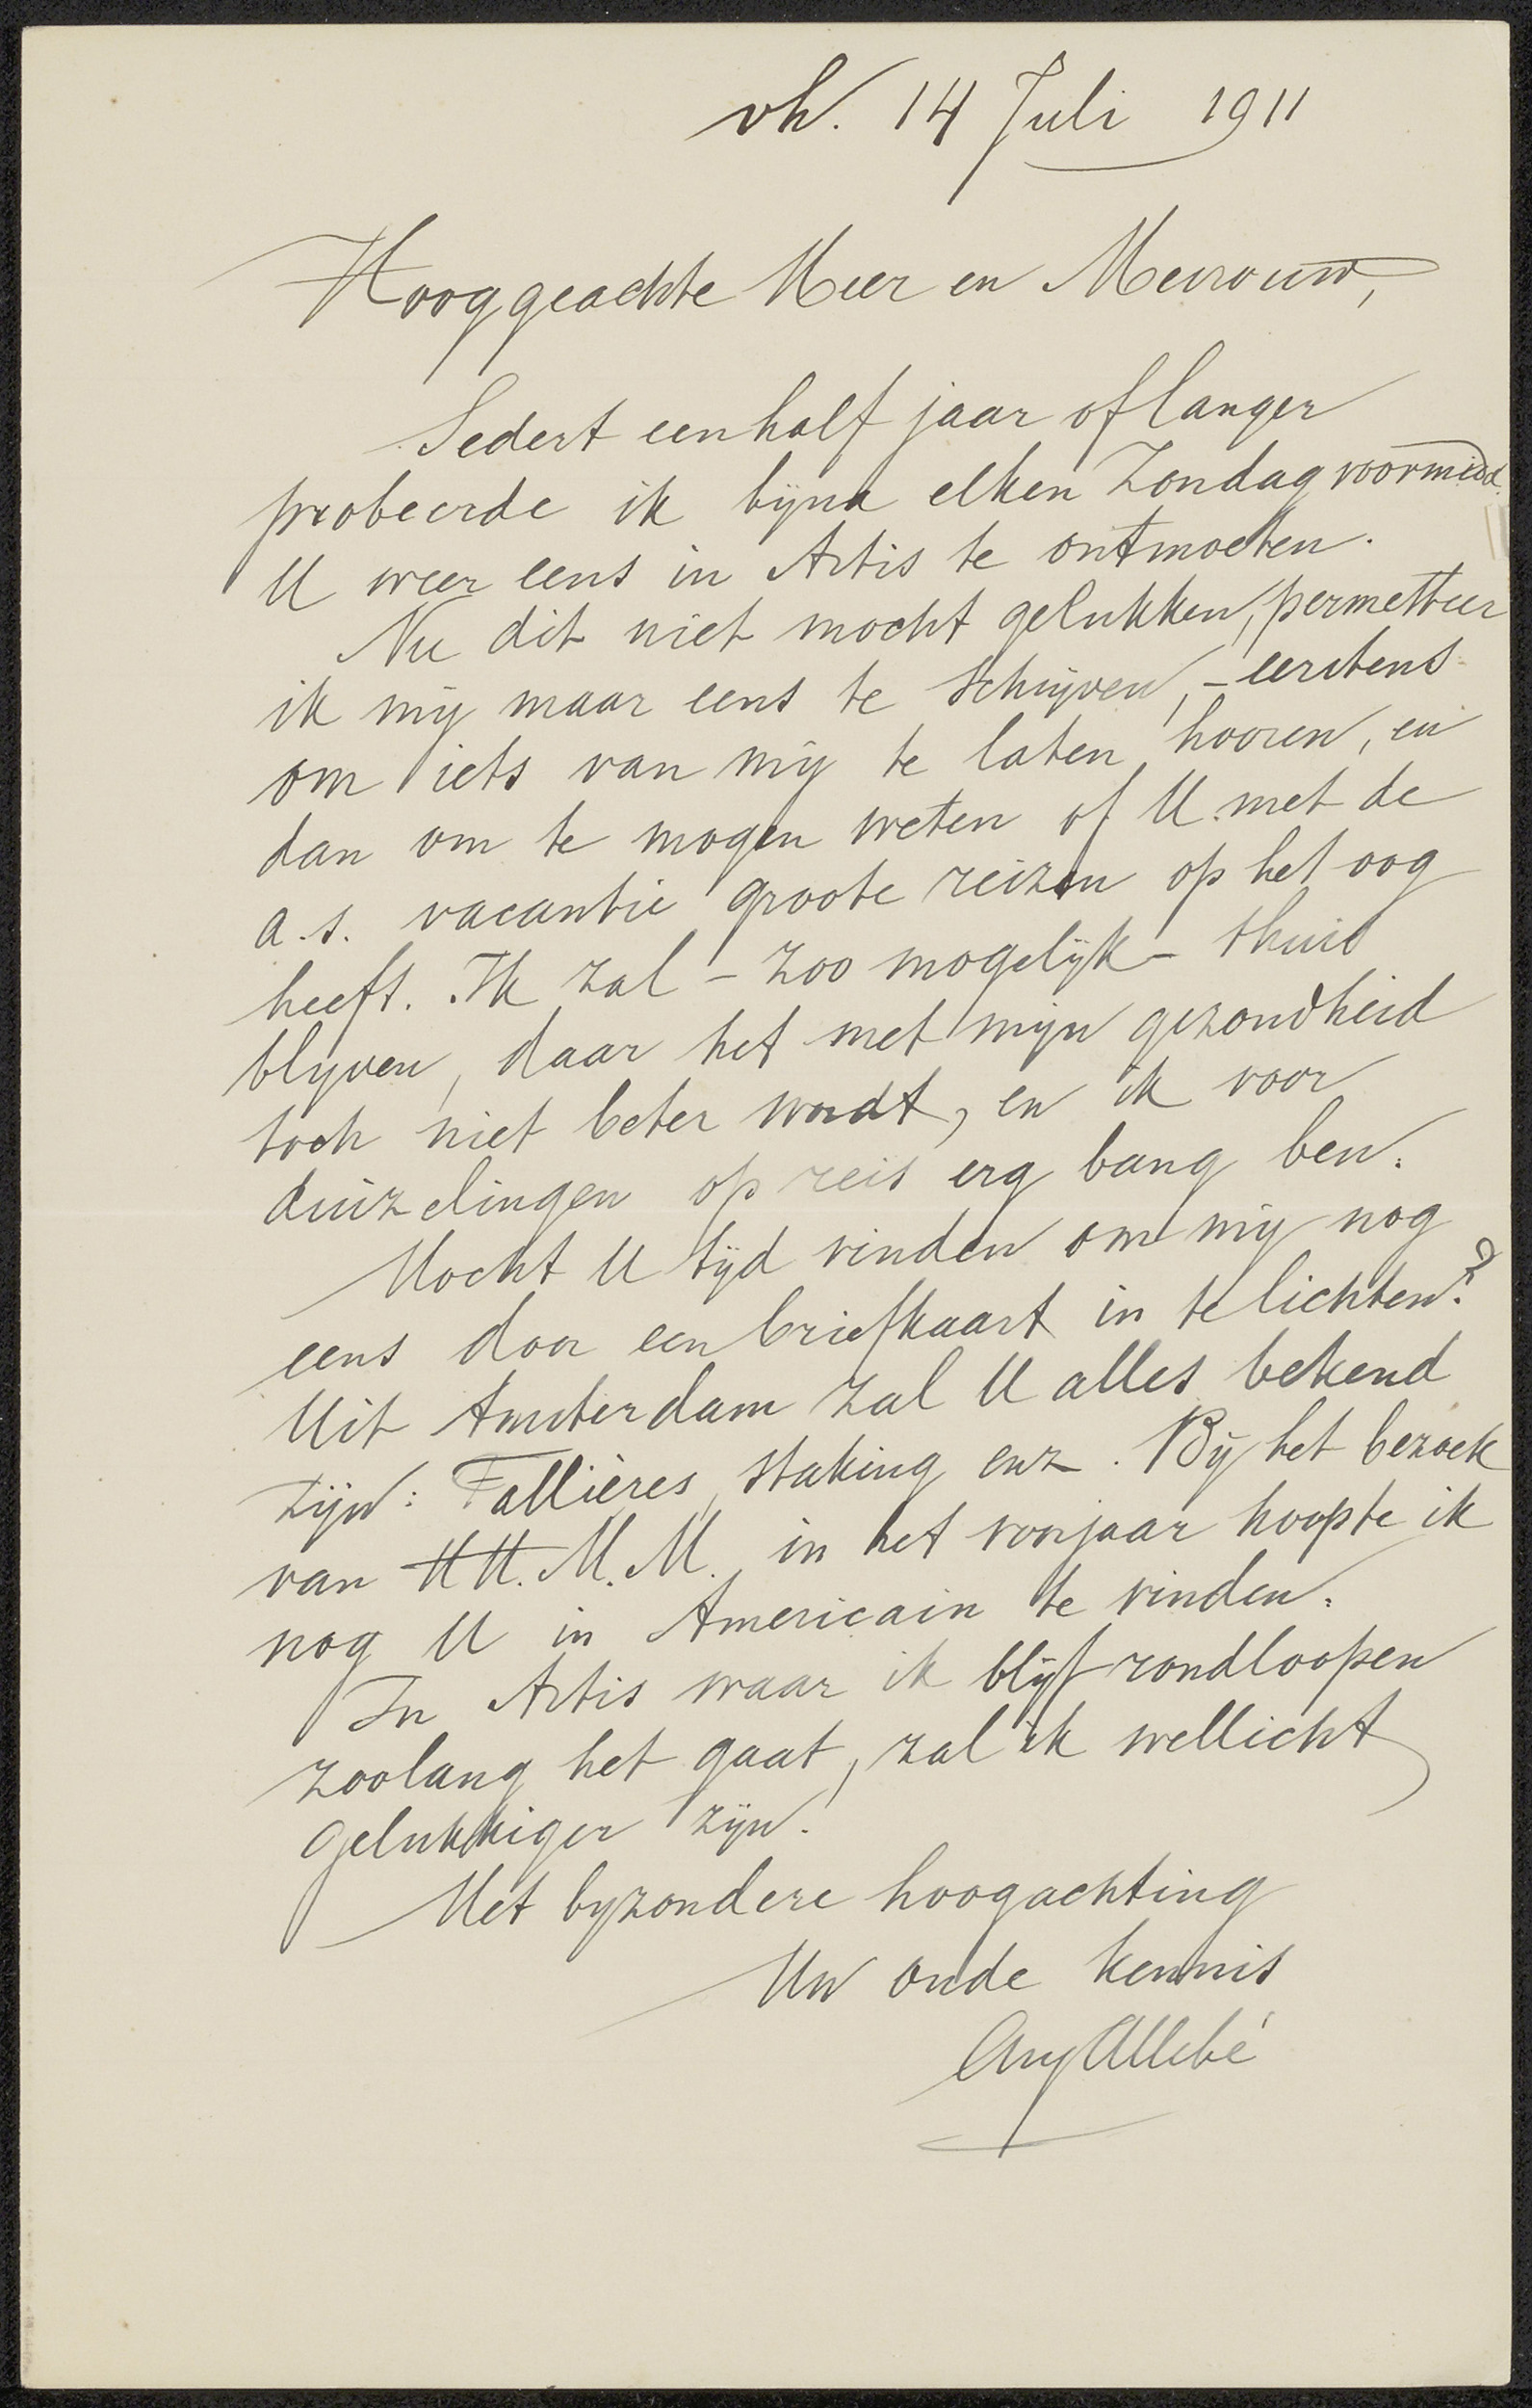 vh. 14 Juli 1911
Hooggeachte Heer en Mevrouw,
Sedert een half jaar of langer
probeerde ik bijna elken Zondag voormidd.
U weer eens in Artis te ontmoeten.
Nu dit niet mocht gelukken, permetteer
ik mij maar eens te schrijven, - eerstens
om iets van mij te laten hooren, en
dan om te mogen weten of U met de
a.s. vacantie groote reizen op het oog
heeft. Ik zal - zoo mogelijk - thuis
blijven, daar het met mijn gezondheid
toch niet beter wordt, en ik voor
duizelingen op reis erg bang ben.
Mocht U tijd vinden om mij nog
eens door een briefkaart in te lichten?
Uit Amsterdam zal U alles bekend
zijn: Fallières, staking enz. Bij het bezoek
van HH.M.M. in het voorjaar hoopte ik
nog U in Americain te vinden.
In Artis waar ik blijf rondloopen
zoolang het gaat, zal ik wellicht
gelukkiger zijn.
Met byzondere hoogachting
Uw oude kennis
Aug Allebé